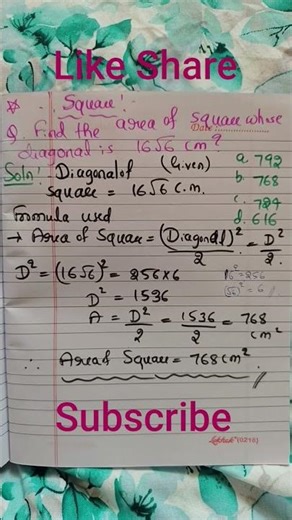 Like Share
Square!
Date
Q. Find the area of square whose
diagonal is 16√6 cm?
Soln! Diagonal of (Given)
square = 16√6 c.m.
a. 792
b. 768
c. 784
d. 616
Formula used
→ Area of Square = (Diagonal)²/2 = D²/2
D² = (16√6)² = 256×6
16² = 256
(√6)² = 6
D² = 1536
A = D²/2 = 1536/2 = 768 cm²
∴ Area of Square = 768 cm².
Subscribe